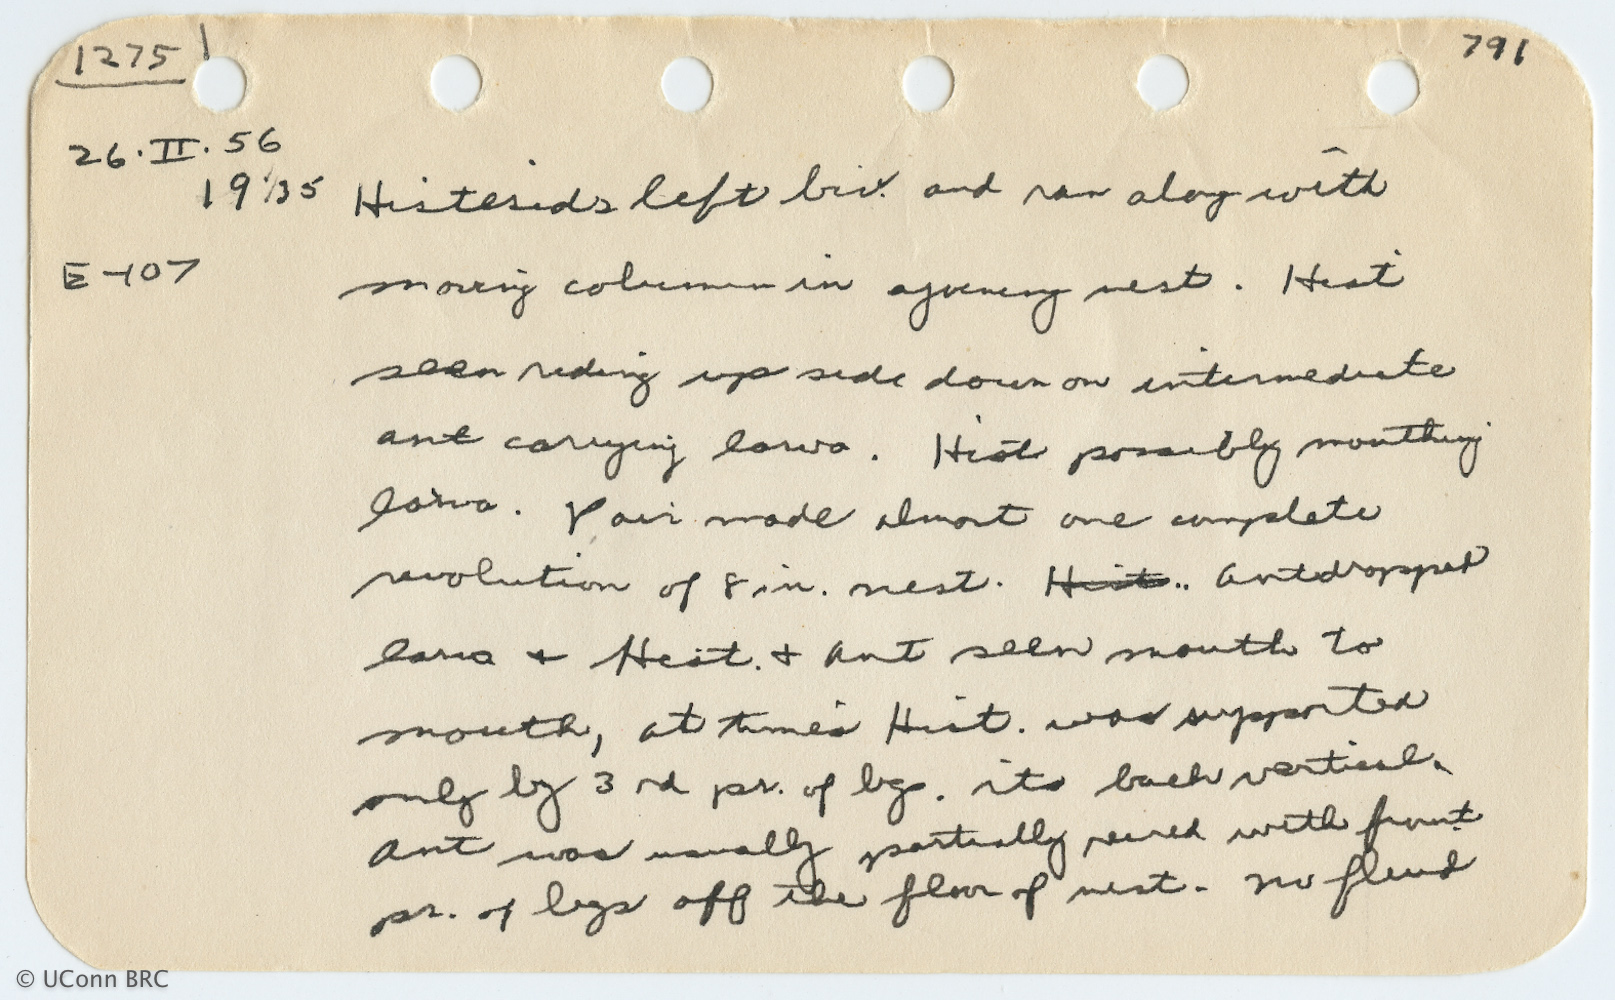 1275
791
26.II.56
19:35 Histerids left biv. and ran along with
E-107
moving column in ajoening nest. Hist
seen riding up side down on intermediate
ant carrying larva. Hist possibly mouthing
larva. Pair made almost one complete
revolution of 8 in. nest. Hist.. Ant dropped
larva + Hist. + ant seen mouth to
mouth, at times Hist. was supported
only by 3 rd pr. of legs. its back vertical.
Ant was usually partially reared with front
pr. of legs off the floor of nest. No fluid
© UConn BRC